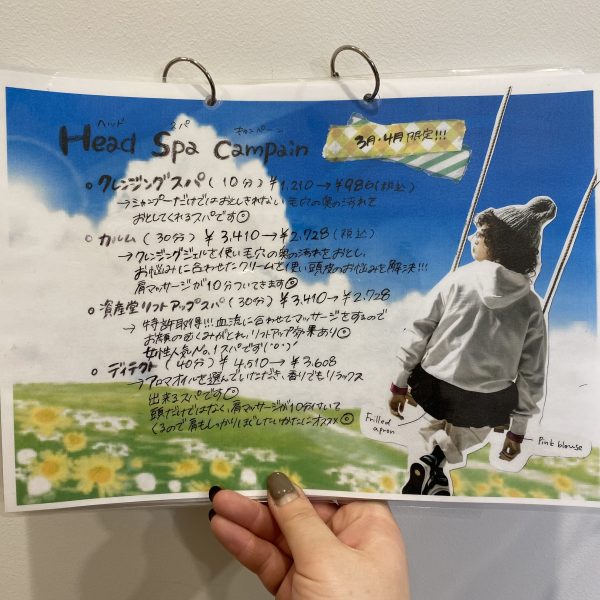 ヘッド スパ キャンペーン
Head Spa Campain
3月・4月 限定!!!
クレンジングスパ (10分) ¥1,210→¥986(税込)
→シャンプーだけではおとしきれない毛穴の奥の汚れを
おとしてくれるスパです
カルム (30分) ¥3,410→¥2,728 (税込)
→クレンジングジェルを使い毛穴の奥の汚れをおとし、
お悩みに合わせたクリームを使い頭皮のお悩みを解決!!!
肩マッサージが10分ついてきます
資産堂リフトアップスパ (30分) ¥3,410→¥2,728
→特許取得!!! 血流に合わせてマッサージをするので
お顔のむくみがとれ、リフトアップ効果あり
女性人気No.1スパです('o')
ディテクト (40分) ¥4,510→¥3,608
→アロマオイルを選んでいただき、香りでもリラックス
出来るスパです
頭だけではなく、肩マッサージが10分付いて
くるので肩もしっかりほぐしたいかたにオススメ
Frilled
apron
Pink blouse